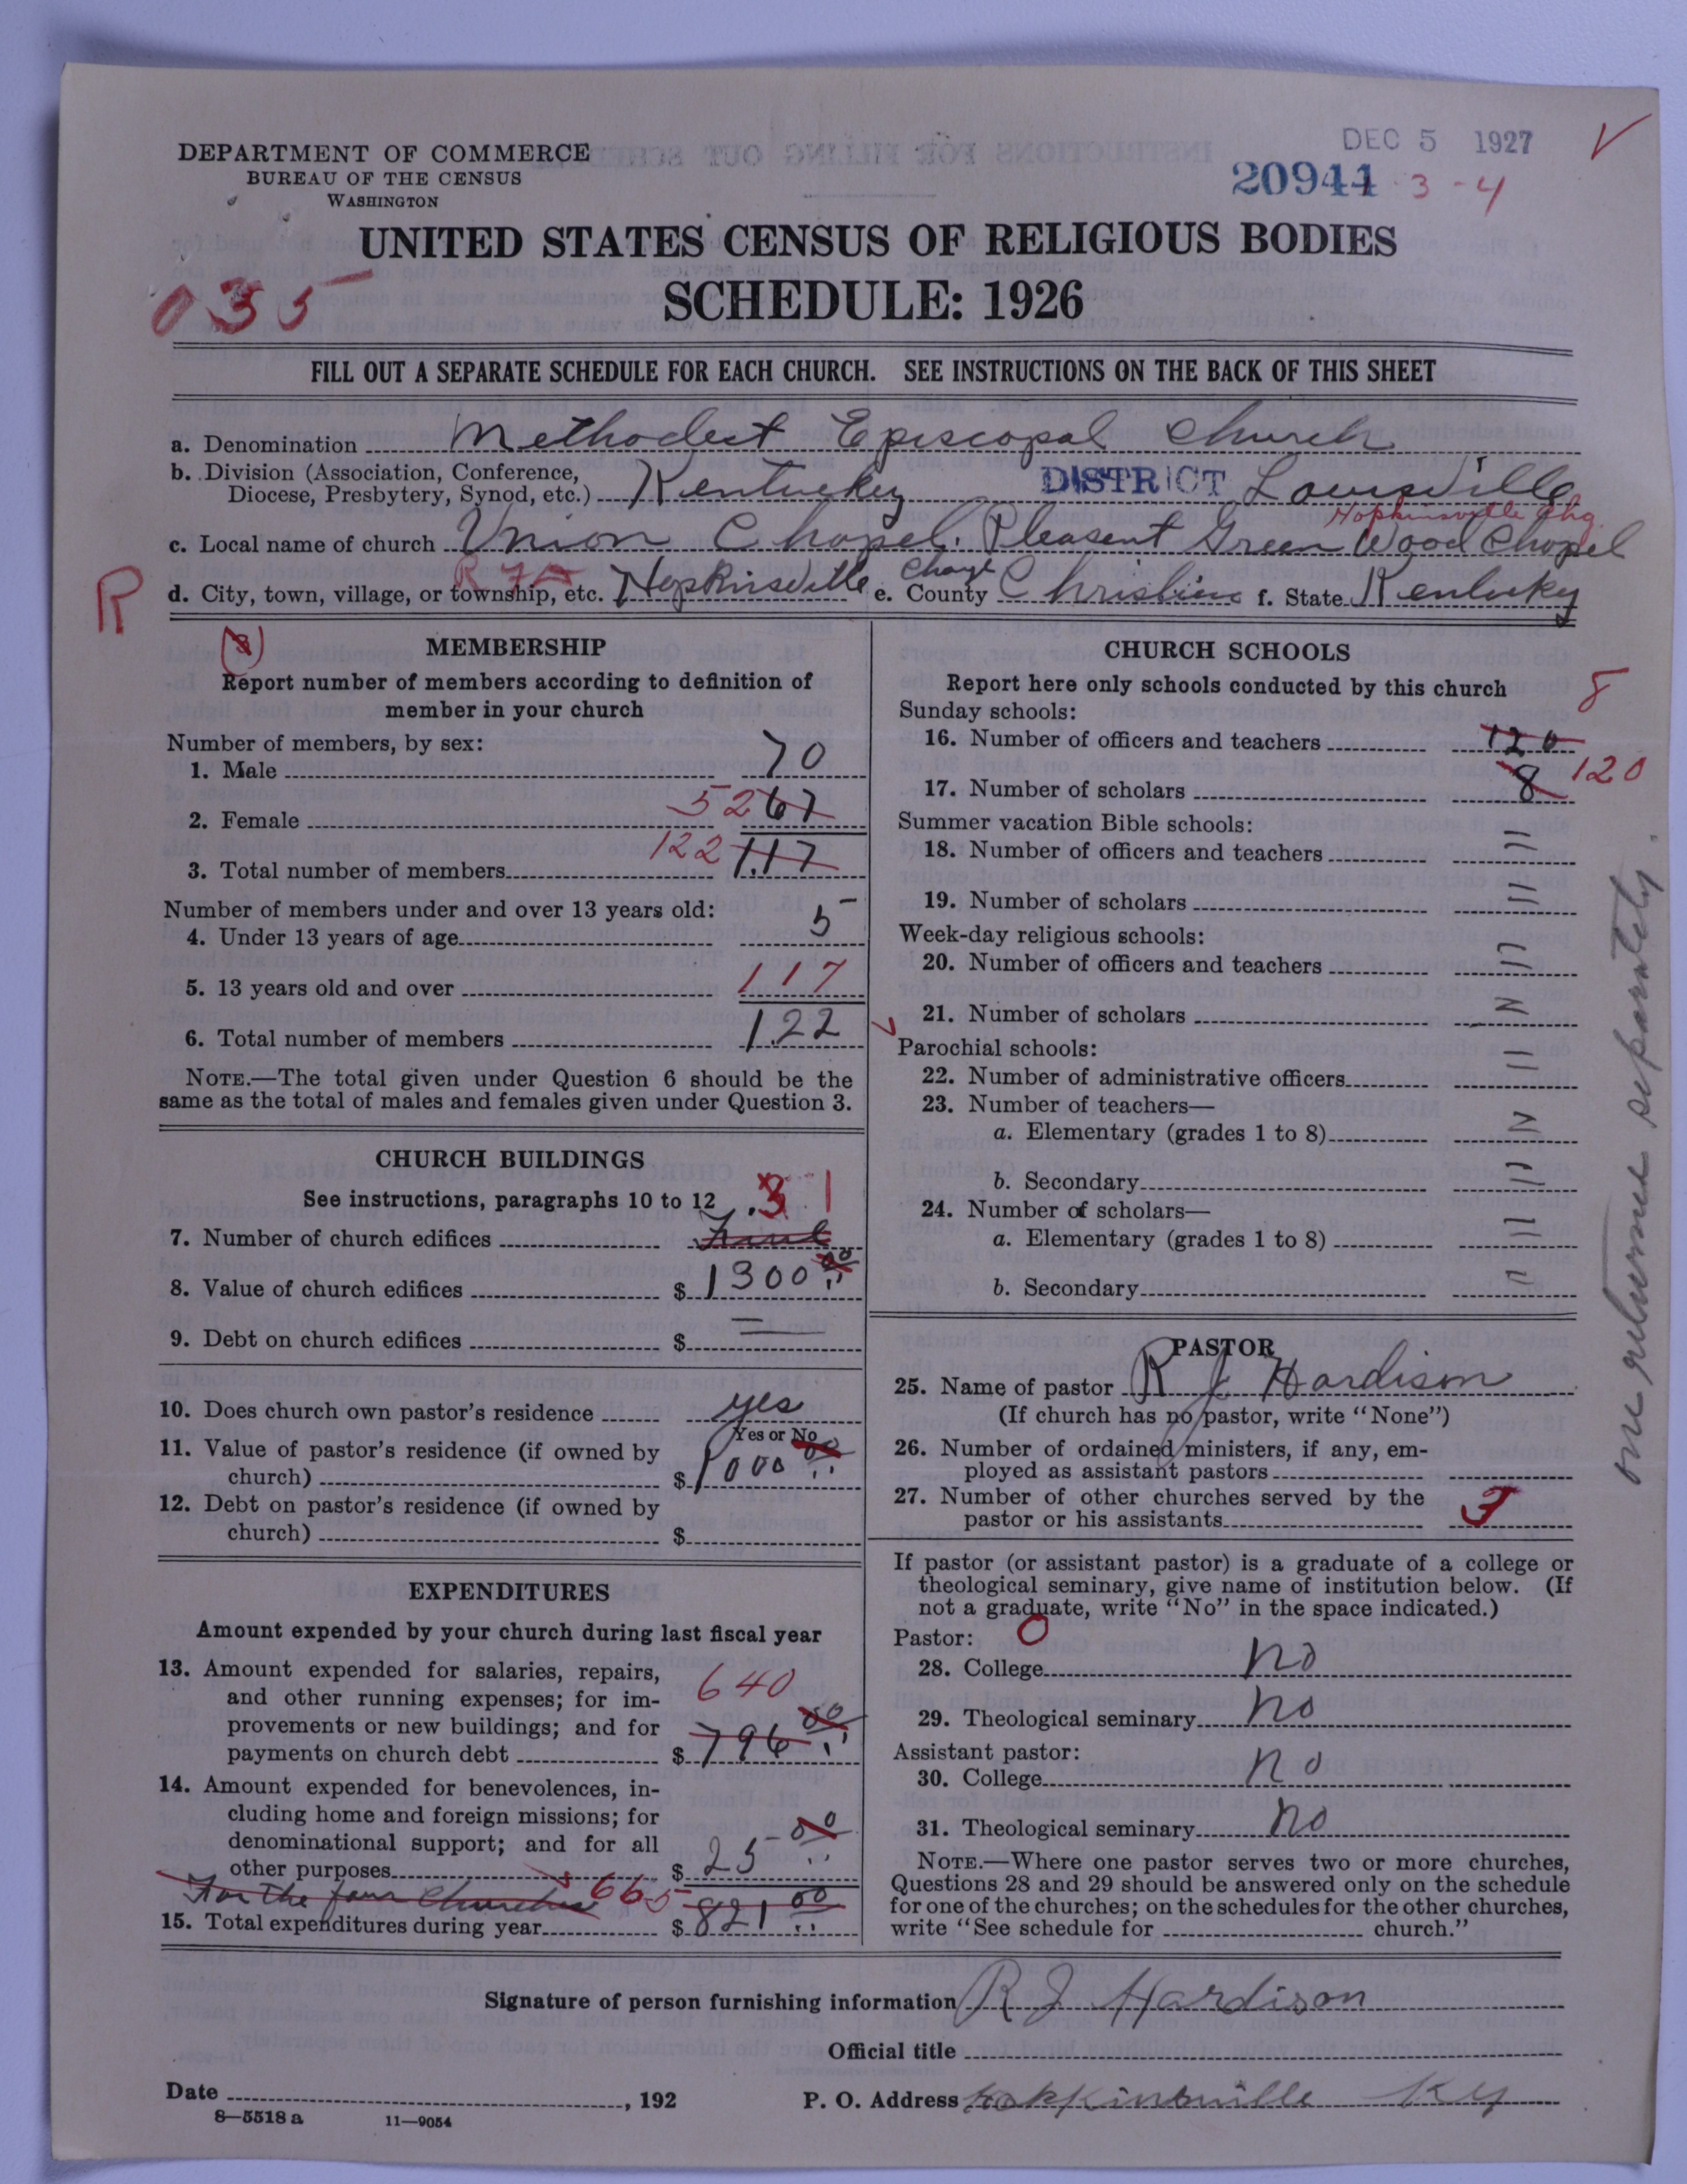 DEPARTMENT OF COMMERCE
BUREAU OF THE CENSUS
WASHINGTON
DEC 5 1927
20944 3-4
UNITED STATES CENSUS OF RELIGIOUS BODIES
SCHEDULE: 1926
035
FILL OUT A SEPARATE SCHEDULE FOR EACH CHURCH. SEE INSTRUCTIONS ON THE BACK OF THIS SHEET
a. Denomination Methodist Episcopal Church
b. Division (Association, Conference, Diocese, Presbytery, Synod, etc.) Kentuckey DISTRICT Louisville
Hopkinsville Chg.
c. Local name of church Union Chapel. Pleasent Green Wood Chapel
R 7A
R
d. City, town, village, or township, etc. Hopkinsville Charge e. County Christian f. State Kentucky
(3)
MEMBERSHIP
Report number of members according to definition of
member in your church
Number of members, by sex:
1. Male 70
2. Female 52 67
3. Total number of members 122 117
Number of members under and over 13 years old:
4. Under 13 years of age 5
5. 13 years old and over 117
6. Total number of members 122
NOTE.—The total given under Question 6 should be the
same as the total of males and females given under Question 3.
CHURCH BUILDINGS
See instructions, paragraphs 10 to 12 3 1
7. Number of church edifices
8. Value of church edifices $ 1300 00
9. Debt on church edifices $ —
10. Does church own pastor's residence yes
Yes or No
11. Value of pastor's residence (if owned by
church) $ 1000 00
12. Debt on pastor's residence (if owned by
church) $
EXPENDITURES
Amount expended by your church during last fiscal year
13. Amount expended for salaries, repairs,
and other running expenses; for im-
provements or new buildings; and for
payments on church debt $ 640 796 00
14. Amount expended for benevolences, in-
cluding home and foreign missions; for
denominational support; and for all
other purposes $ 25 00
For the four churches 665
15. Total expenditures during year $ 821 00
CHURCH SCHOOLS
Report here only schools conducted by this church
Sunday schools: 8
16. Number of officers and teachers 120
17. Number of scholars 8 120
Summer vacation Bible schools:
18. Number of officers and teachers
19. Number of scholars
Week-day religious schools:
20. Number of officers and teachers
21. Number of scholars
Parochial schools:
22. Number of administrative officers
23. Number of teachers—
a. Elementary (grades 1 to 8)
b. Secondary
24. Number of scholars—
a. Elementary (grades 1 to 8)
b. Secondary
PASTOR
25. Name of pastor R J Hardison
(If church has no pastor, write "None")
26. Number of ordained ministers, if any, em-
ployed as assistant pastors
27. Number of other churches served by the
pastor or his assistants 3
If pastor (or assistant pastor) is a graduate of a college or
theological seminary, give name of institution below. (If
not a graduate, write "No" in the space indicated.)
Pastor: 0
28. College no
29. Theological seminary no
Assistant pastor:
30. College no
31. Theological seminary no
NOTE.—Where one pastor serves two or more churches,
Questions 28 and 29 should be answered only on the schedule
for one of the churches; on the schedules for the other churches,
write "See schedule for church."
Signature of person furnishing information R J Hardison
Official title
Date , 192 P. O. Address Hopkinsville Ky
8—5518 a 11—9054
separately